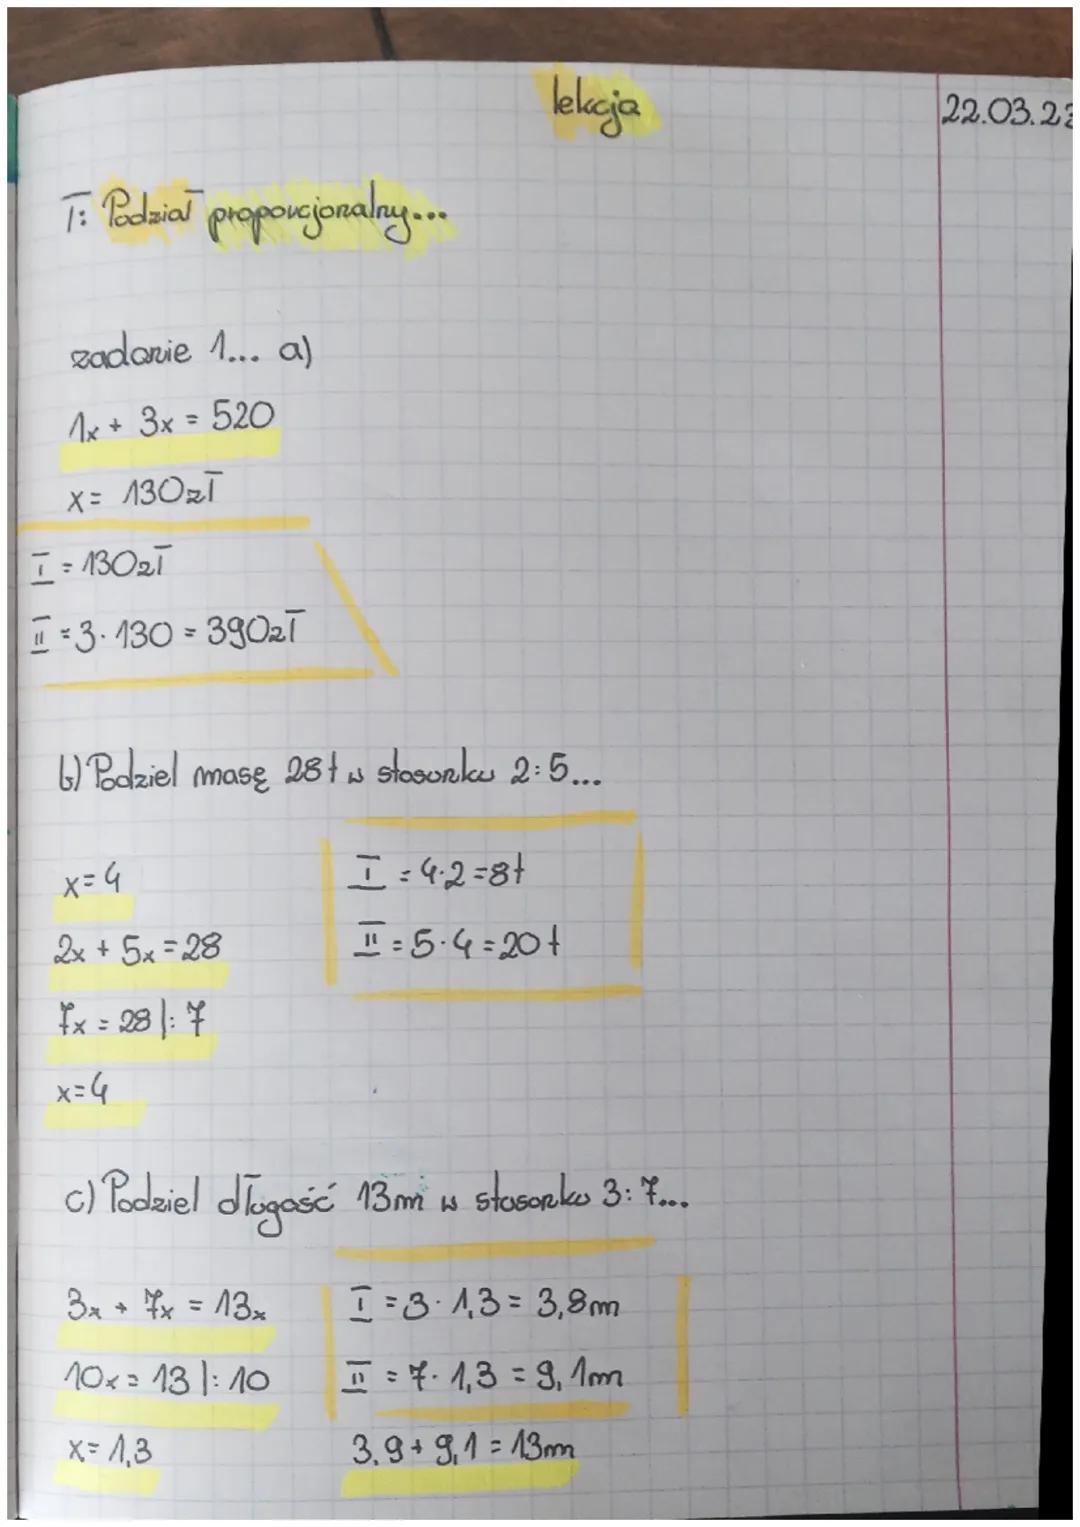 lekcja
22.03.23
T: Podział proporcjonalny...
zadanie 1... a)
1x + 3x = 520
x = 130zł
I = 130zł
II = 3 · 130 = 390zł
b) Podziel masę 28t w stosunku 2:5...
x = 4
I = 4·2 = 8t
2x + 5x = 28
II = 5·4 = 20t
7x = 28 |: 7
x = 4
c) Podziel długość 13m w stosunku 3:7...
3x + 7x = 13x
I = 3 · 1,3 = 3,8m
10x = 13 |: 10
II = 7 · 1,3 = 9,1m
x = 1,3
3,9 + 9,1 = 13m